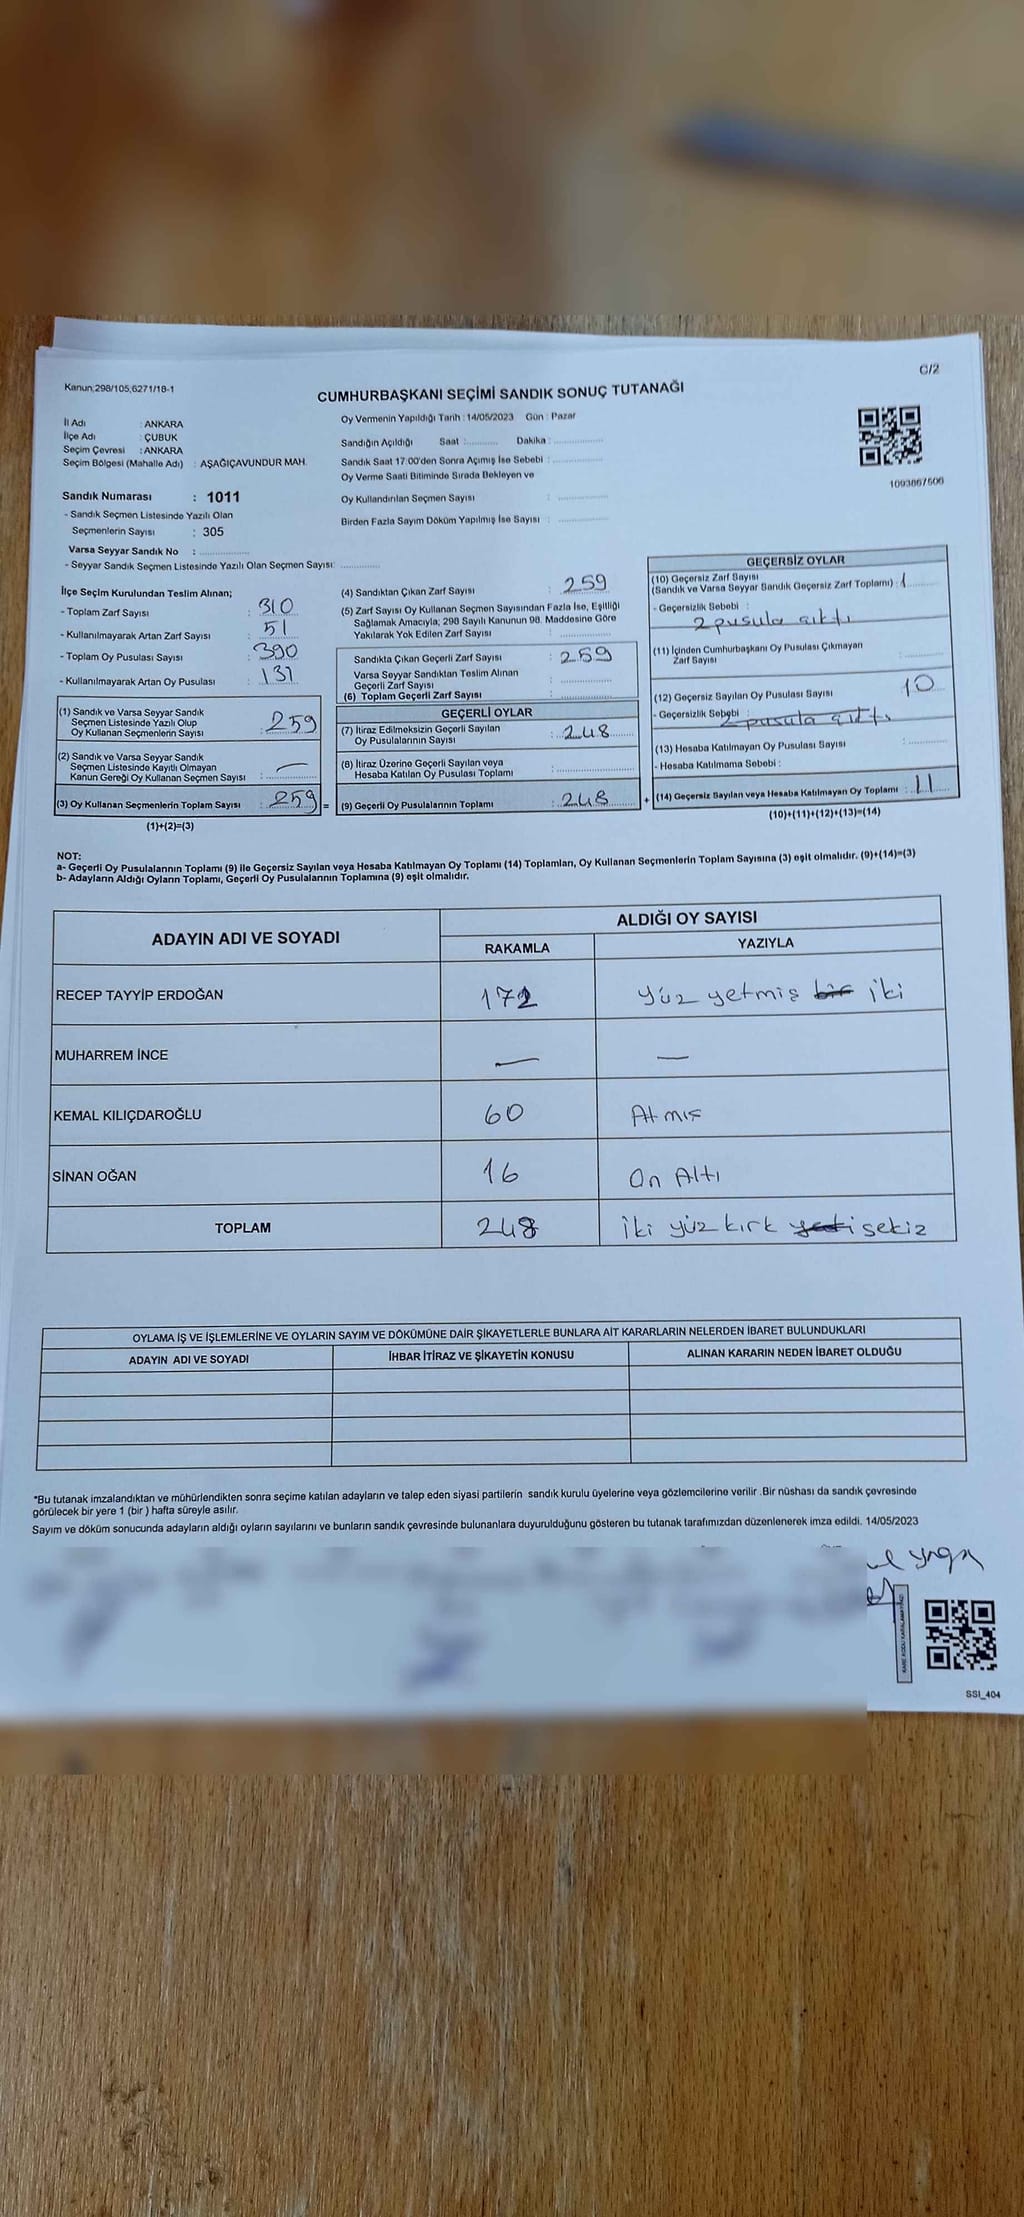 C/2
Kanun:298/105,6271/18-1
CUMHURBAŞKANI SEÇİMİ SANDIK SONUÇ TUTANAĞI
İl Adı : ANKARA
İlçe Adı : ÇUBUK
Seçim Çevresi : ANKARA
Seçim Bölgesi (Mahalle Adı) : AŞAĞIÇAVUNDUR MAH.
Oy Vermenin Yapıldığı Tarih : 14/05/2023 Gün : Pazar
Sandığın Açıldığı Saat :........... Dakika :...............
Sandık Saat 17:00'den Sonra Açımış İse Sebebi :...............
Oy Verme Saati Bitiminde Sırada Bekleyen ve
Oy Kullandırılan Seçmen Sayısı : ...............
Birden Fazla Sayım Döküm Yapılmış İse Sayısı : ...............
1093867506
Sandık Numarası : 1011
- Sandık Seçmen Listesinde Yazılı Olan
Seçmenlerin Sayısı : 305
Varsa Seyyar Sandık No : ...............
- Seyyar Sandık Seçmen Listesinde Yazılı Olan Seçmen Sayısı: ............
İlçe Seçim Kurulundan Teslim Alınan;
- Toplam Zarf Sayısı : 310
- Kullanılmayarak Artan Zarf Sayısı : 51
- Toplam Oy Pusulası Sayısı : 390
- Kullanılmayarak Artan Oy Pusulası : 131
(1) Sandık ve Varsa Seyyar Sandık
Seçmen Listesinde Yazılı Olup
Oy Kullanan Seçmenlerin Sayısı : 259
(2) Sandık ve Varsa Seyyar Sandık
Seçmen Listesinde Kayıtlı Olmayan
Kanun Gereği Oy Kullanan Seçmen Sayısı : —
(3) Oy Kullanan Seçmenlerin Toplam Sayısı : 259 =
(1)+(2)=(3)
(4) Sandıktan Çıkan Zarf Sayısı : 259
(5) Zarf Sayısı Oy Kullanan Seçmen Sayısından Fazla İse, Eşitliği
Sağlamak Amacıyla; 298 Sayılı Kanunun 98. Maddesine Göre
Yakılarak Yok Edilen Zarf Sayısı : ...............
Sandıkta Çıkan Geçerli Zarf Sayısı : 259
Varsa Seyyar Sandıktan Teslim Alınan
Geçerli Zarf Sayısı : ...............
(6) Toplam Geçerli Zarf Sayısı : ...............
GEÇERLİ OYLAR
(7) İtiraz Edilmeksizin Geçerli Sayılan
Oy Pusulalarının Sayısı : 248
(8) İtiraz Üzerine Geçerli Sayılan veya
Hesaba Katılan Oy Pusulası Toplamı : ...............
(9) Geçerli Oy Pusulalarının Toplamı : 248 +
GEÇERSİZ OYLAR
(10) Geçersiz Zarf Sayısı
(Sandık ve Varsa Seyyar Sandık Geçersiz Zarf Toplamı) : 1
- Geçersizlik Sebebi :
2 pusula çıktı
(11) İçinden Cumhurbaşkanı Oy Pusulası Çıkmayan
Zarf Sayısı : ...............
(12) Geçersiz Sayılan Oy Pusulası Sayısı 10
- Geçersizlik Sebebi :
2 pusula çıktı
(13) Hesaba Katılmayan Oy Pusulası Sayısı : ...............
- Hesaba Katılmama Sebebi :
(14) Geçersiz Sayılan veya Hesaba Katılmayan Oy Toplamı : 11
(10)+(11)+(12)+(13)=(14)
NOT:
a- Geçerli Oy Pusulalarının Toplamı (9) ile Geçersiz Sayılan veya Hesaba Katılmayan Oy Toplamı (14) Toplamları, Oy Kullanan Seçmenlerin Toplam Sayısına (3) eşit olmalıdır. (9)+(14)=(3)
b- Adayların Aldığı Oyların Toplamı, Geçerli Oy Pusulalarının Toplamına (9) eşit olmalıdır.
ADAYIN ADI VE SOYADI
ALDIĞI OY SAYISI
RAKAMLA YAZIYLA
RECEP TAYYİP ERDOĞAN 172 Yüz yetmiş bir iki
MUHARREM İNCE — —
KEMAL KILIÇDAROĞLU 60 Atmış
SİNAN OĞAN 16 On Altı
TOPLAM 248 iki yüz kırk yedi sekiz
OYLAMA İŞ VE İŞLEMLERİNE VE OYLARIN SAYIM VE DÖKÜMÜNE DAİR ŞİKAYETLERLE BUNLARA AİT KARARLARIN NELERDEN İBARET BULUNDUKLARI
ADAYIN ADI VE SOYADI İHBAR İTİRAZ VE ŞİKAYETİN KONUSU ALINAN KARARIN NEDEN İBARET OLDUĞU
*Bu tutanak imzalandıktan ve mühürlendikten sonra seçime katılan adayların ve talep eden siyasi partilerin sandık kurulu üyelerine veya gözlemcilerine verilir .Bir nüshası da sandık çevresinde
görülecek bir yere 1 (bir ) hafta süreyle asılır.
Sayım ve döküm sonucunda adayların aldığı oyların sayılarını ve bunların sandık çevresinde bulunanlara duyurulduğunu gösteren bu tutanak tarafımızdan düzenlenerek imza edildi. 14/05/2023
KARE KODU KARALAMAYINIZ!
SSI_404